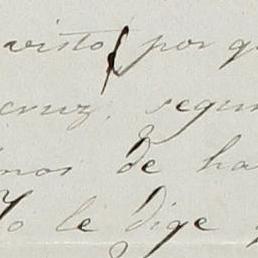 visto por q
cruz, segun
inos de ha
Yo le dige